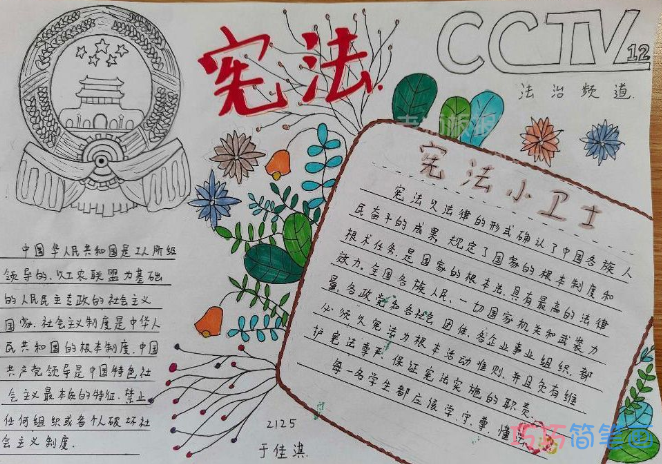 宪法
CCTV
12
法治频道
宪法小卫士
宪法以法律的形式确认了中国各族人
民奋斗的成果,规定了国家的根本制度和
根本任务,是国家的根本法,具有最高的法律
效力。全国各族人民、一切国家机关和武装力
量、各政党和各社会团体、各企业事业组织,都
必须以宪法为根本活动准则,并且负有维
护宪法尊严、保证宪法实施的职责。
每一名学生都应该学、守、尊、懂
中国华人民共和国是工人阶级
领导的,以工农联盟为基础
的人民民主专政的社会主义
国家。社会主义制度是中华人
民共和国的根本制度。中国
共产党领导是中国特色社
会主义最本质的特征。禁止
任何组织或者个人破坏社
会主义制度。
2125
于佳淇
巧巧简笔画